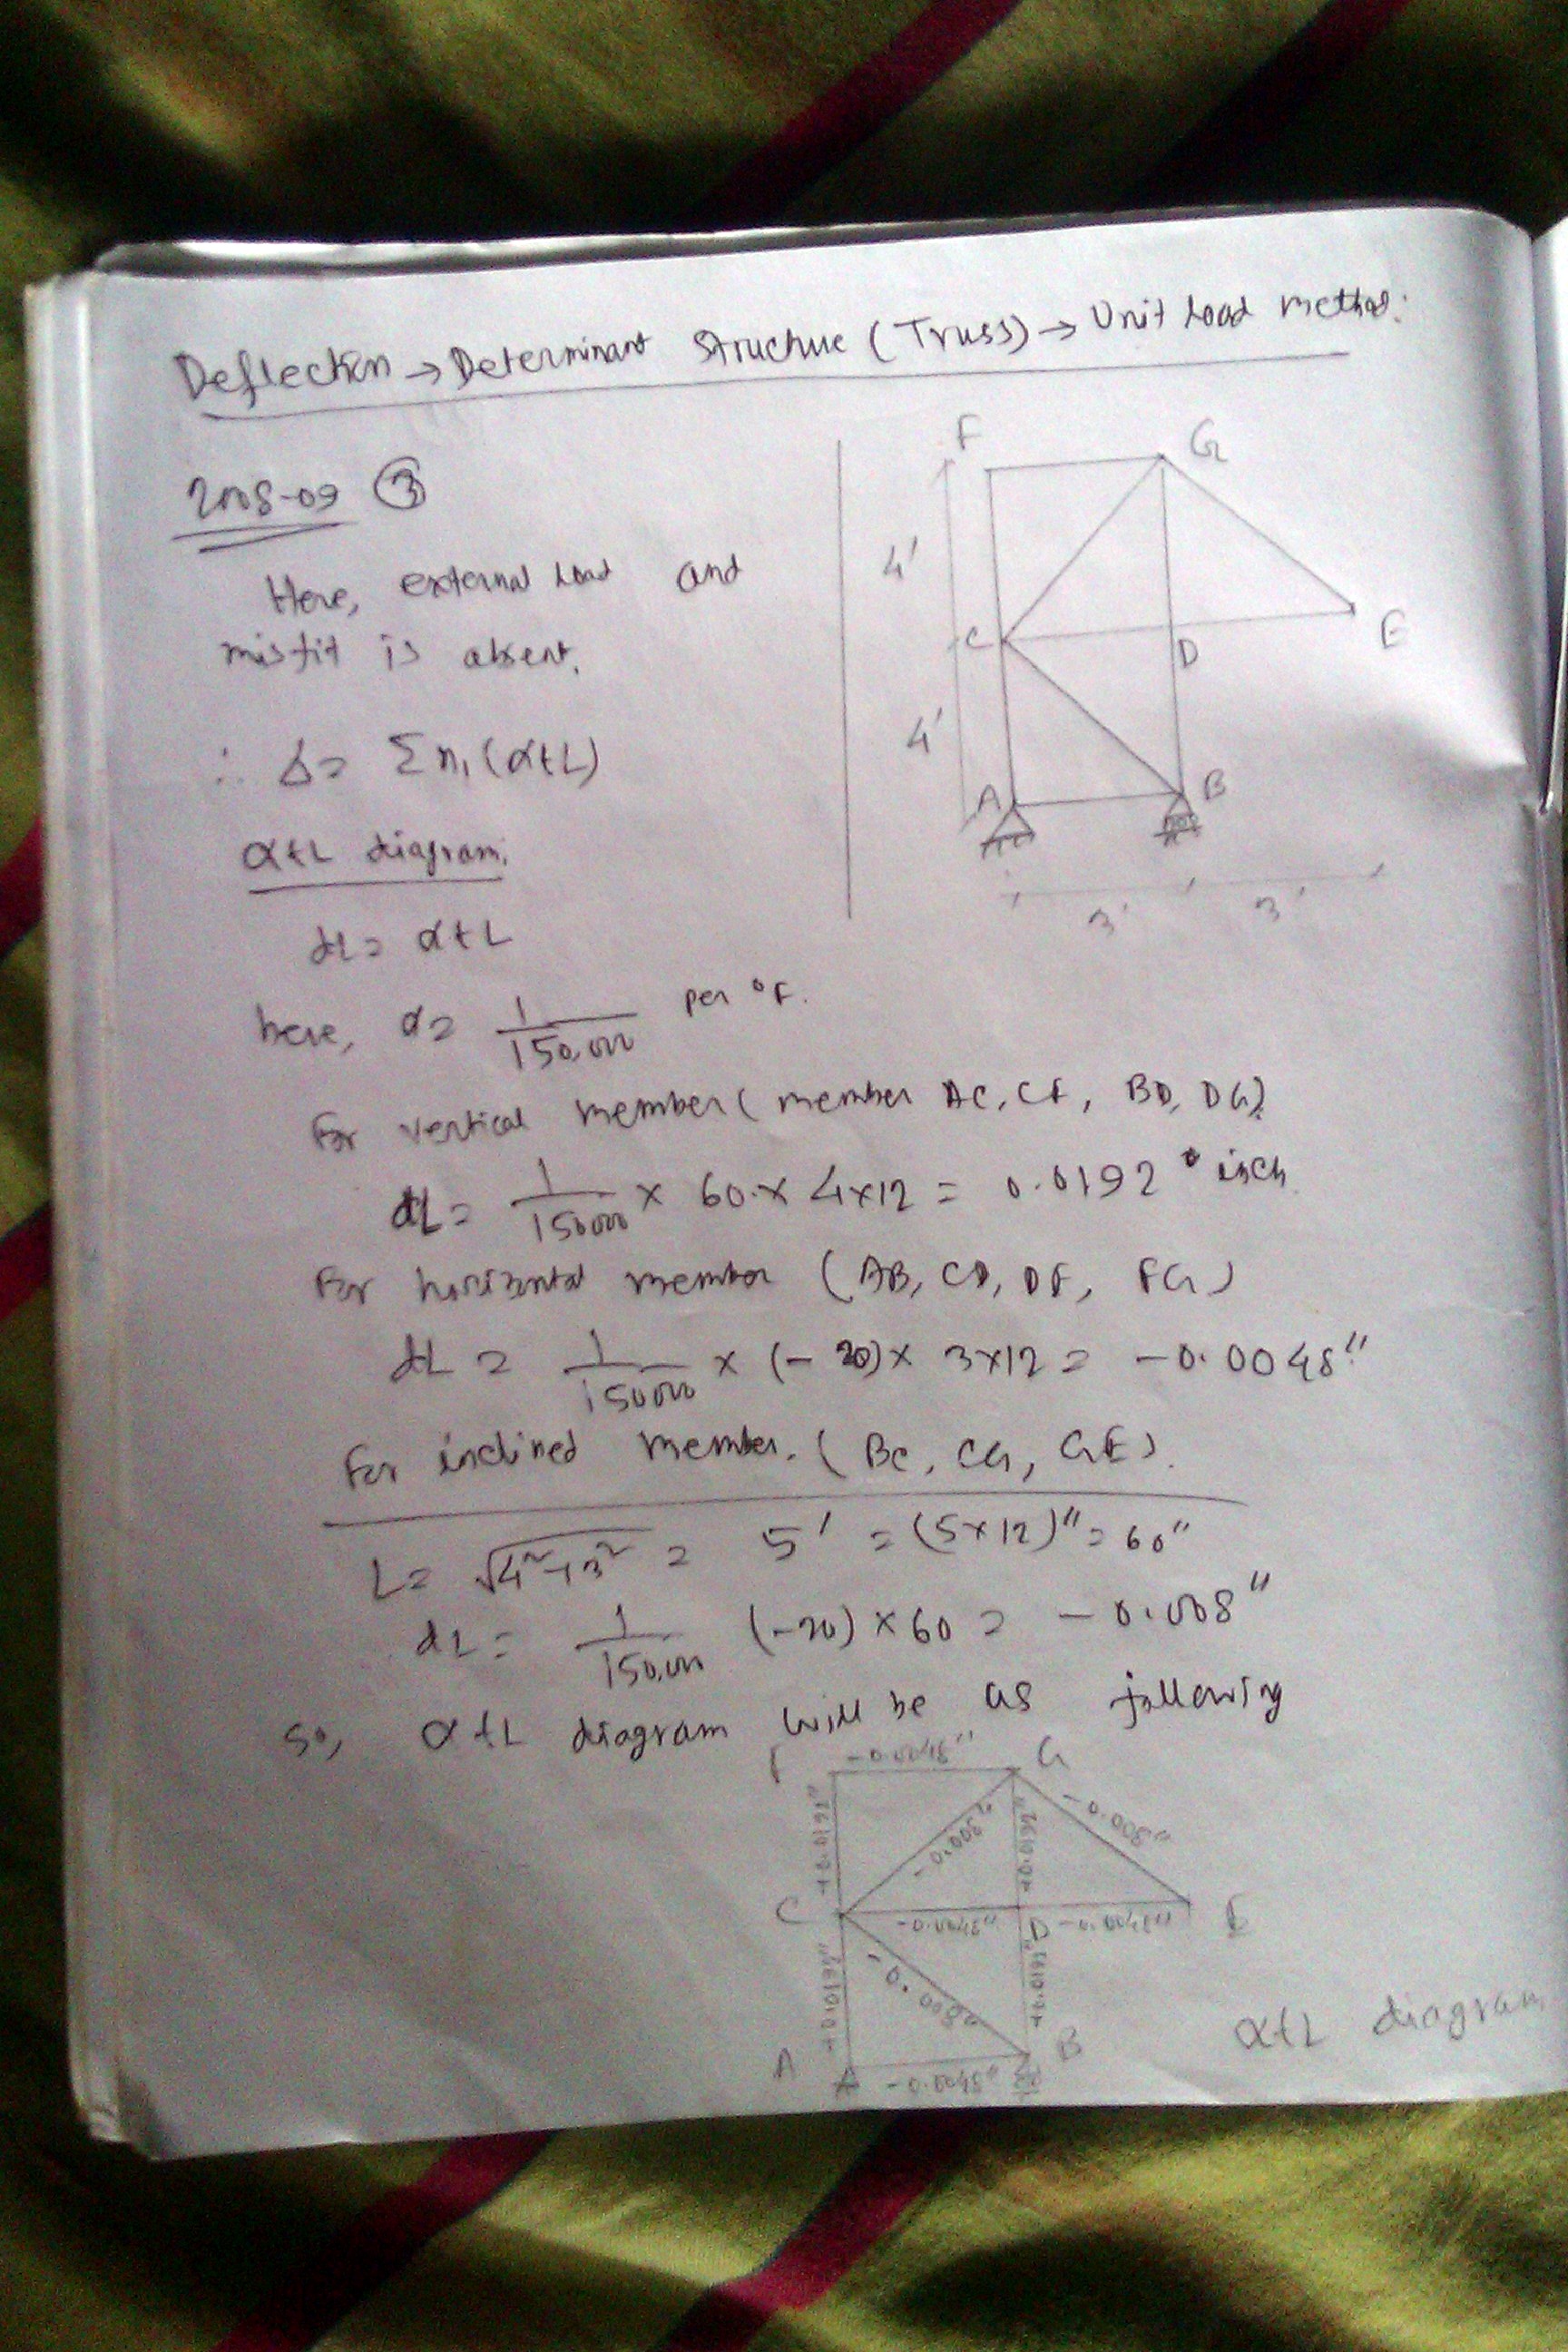 Deflection → Determinant Structure (Truss) → Unit Load Method:
2008-09 ③
Here, external load and
misfit is absent.
∴ Δ = Σ n₁ (αtL)
αtL diagram:
dL = αtL
here, α = 1/150,000 per °F.
For vertical member (member AC, CF, BD, DG).
dL = 1/150000 × 60 × 4×12 = 0.0192 inch
For horizontal member (AB, CD, DE, FG)
dL = 1/150000 × (-20) × 3×12 = -0.0048"
For inclined member. (BC, CG, GE).
L = √4²+3² = 5' = (5×12)" = 60"
dL = 1/150,000 (-20) × 60 = -0.008"
So, αtL diagram will be as following
F
G
4'
C
D
E
4'
A
B
3'
3'
F
-0.0048"
G
+0.0192"
-0.008"
+0.0192"
-0.008"
C
-0.0048"
D
-0.0048"
E
+0.0192"
-0.008"
+0.0192"
A
-0.0048"
B
αtL diagram